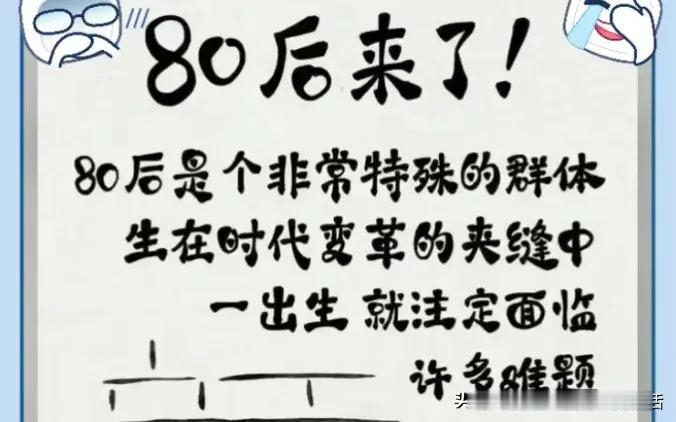 80后来了!
80后是个非常特殊的群体
生在时代变革的夹缝中
一出生 就注定面临
许多难题
头
活